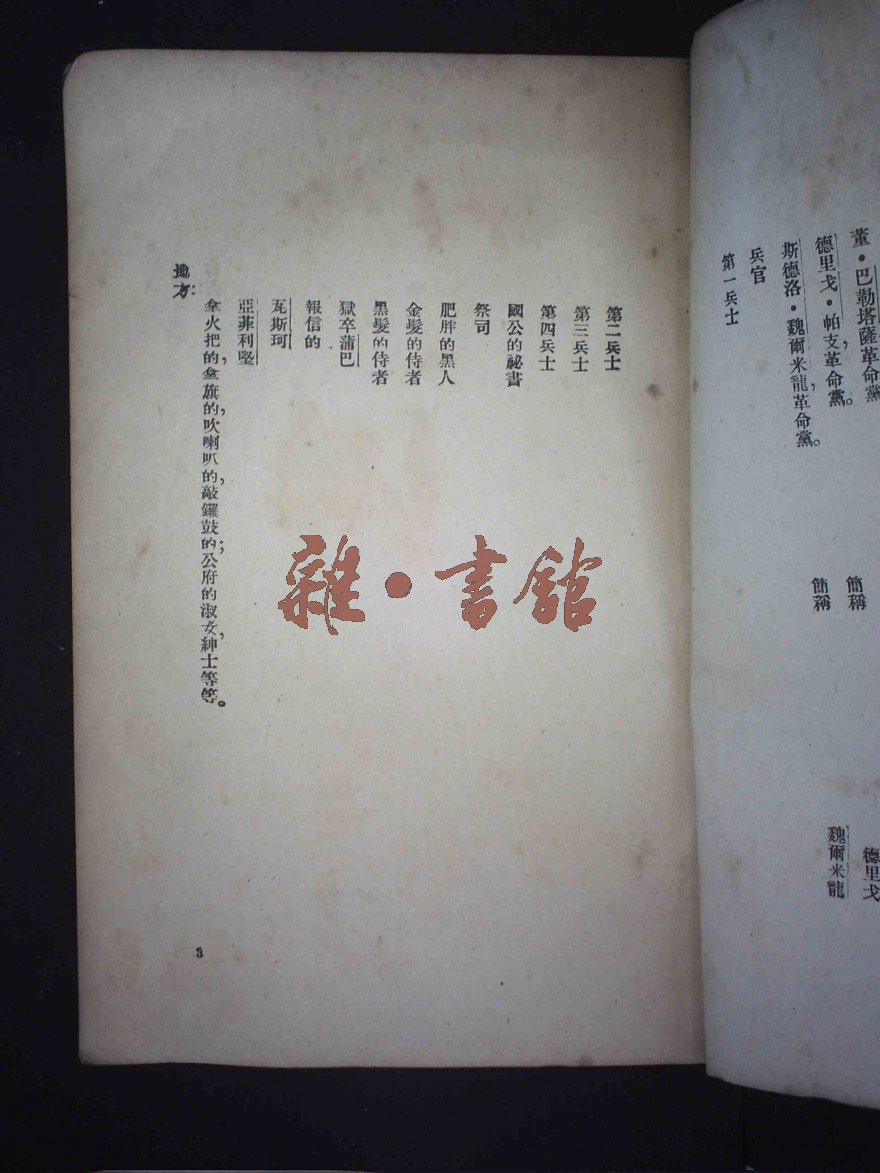 董·巴勒塔薩革命黨
簡稱
德里戈
德里戈·帕支，革命黨。
簡稱
魏爾米龍
斯德洛·魏爾米龍，革命黨。
兵官
第一兵士
第二兵士
第三兵士
第四兵士
國公的祕書
祭司
肥胖的黑人
金髮的侍者
黑髮的侍者
獄卒蒲巴
報信的
瓦斯珂
亞菲利堅
拿火把的，拿旗的，吹喇叭的，敲鑼鼓的；公府的淑女，紳士等等。
地方：
3
雜·書館